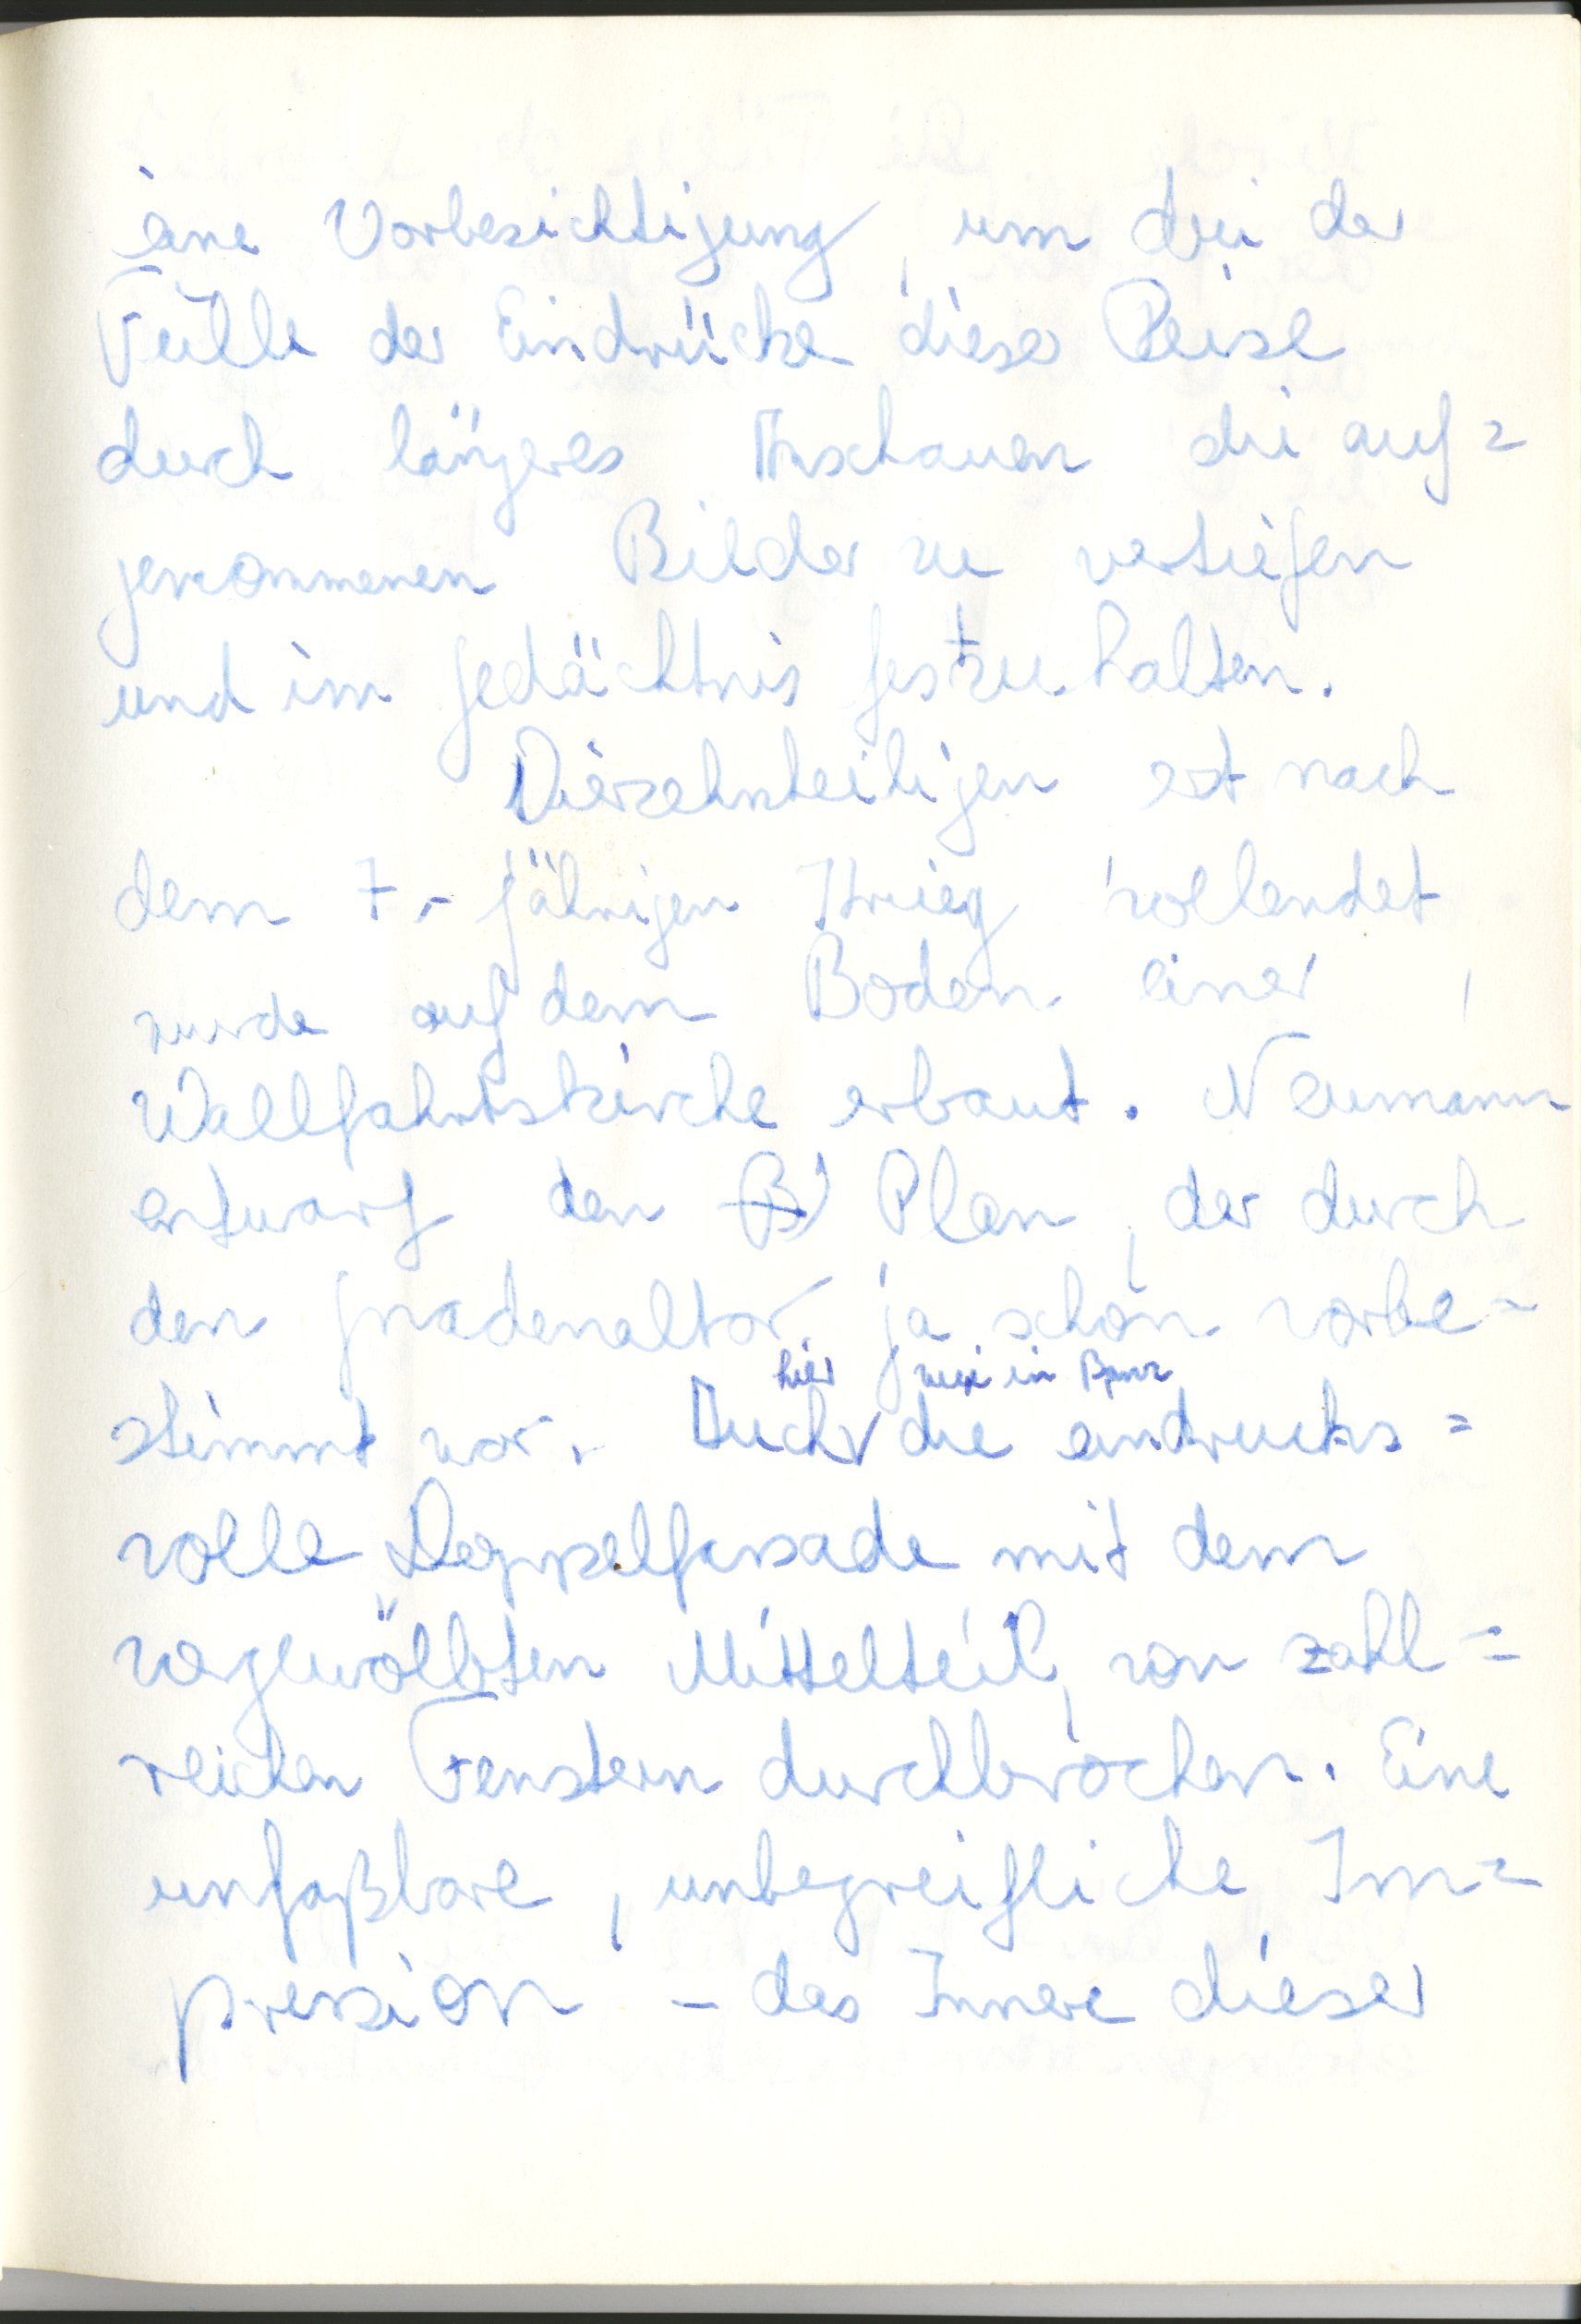 eine Vorbesichtigung, um bei der
Fülle der Eindrücke dieser Reise
durch längeres Anschauen die auf=
genommenen Bilder zu vertiefen
und im Gedächtnis festzuhalten.
Vierzehnheiligen erst nach
dem 7.-jährigen Krieg vollendet
wurde auf dem Boden einer
Wallfahrtskirche erbaut. Neumann
entwarf den Plan, der durch
den Gnadenaltar ja schon vorbe=
hier wie in Banz
stimmt war. Auch die eindrucks=
volle Doppelfassade mit dem
vorgewölbten Mittelteil, von zahl=
reichen Fenstern durchbrochen. Eine
unfaßbare, unbegreifliche Im=
pression - das Innere dieser